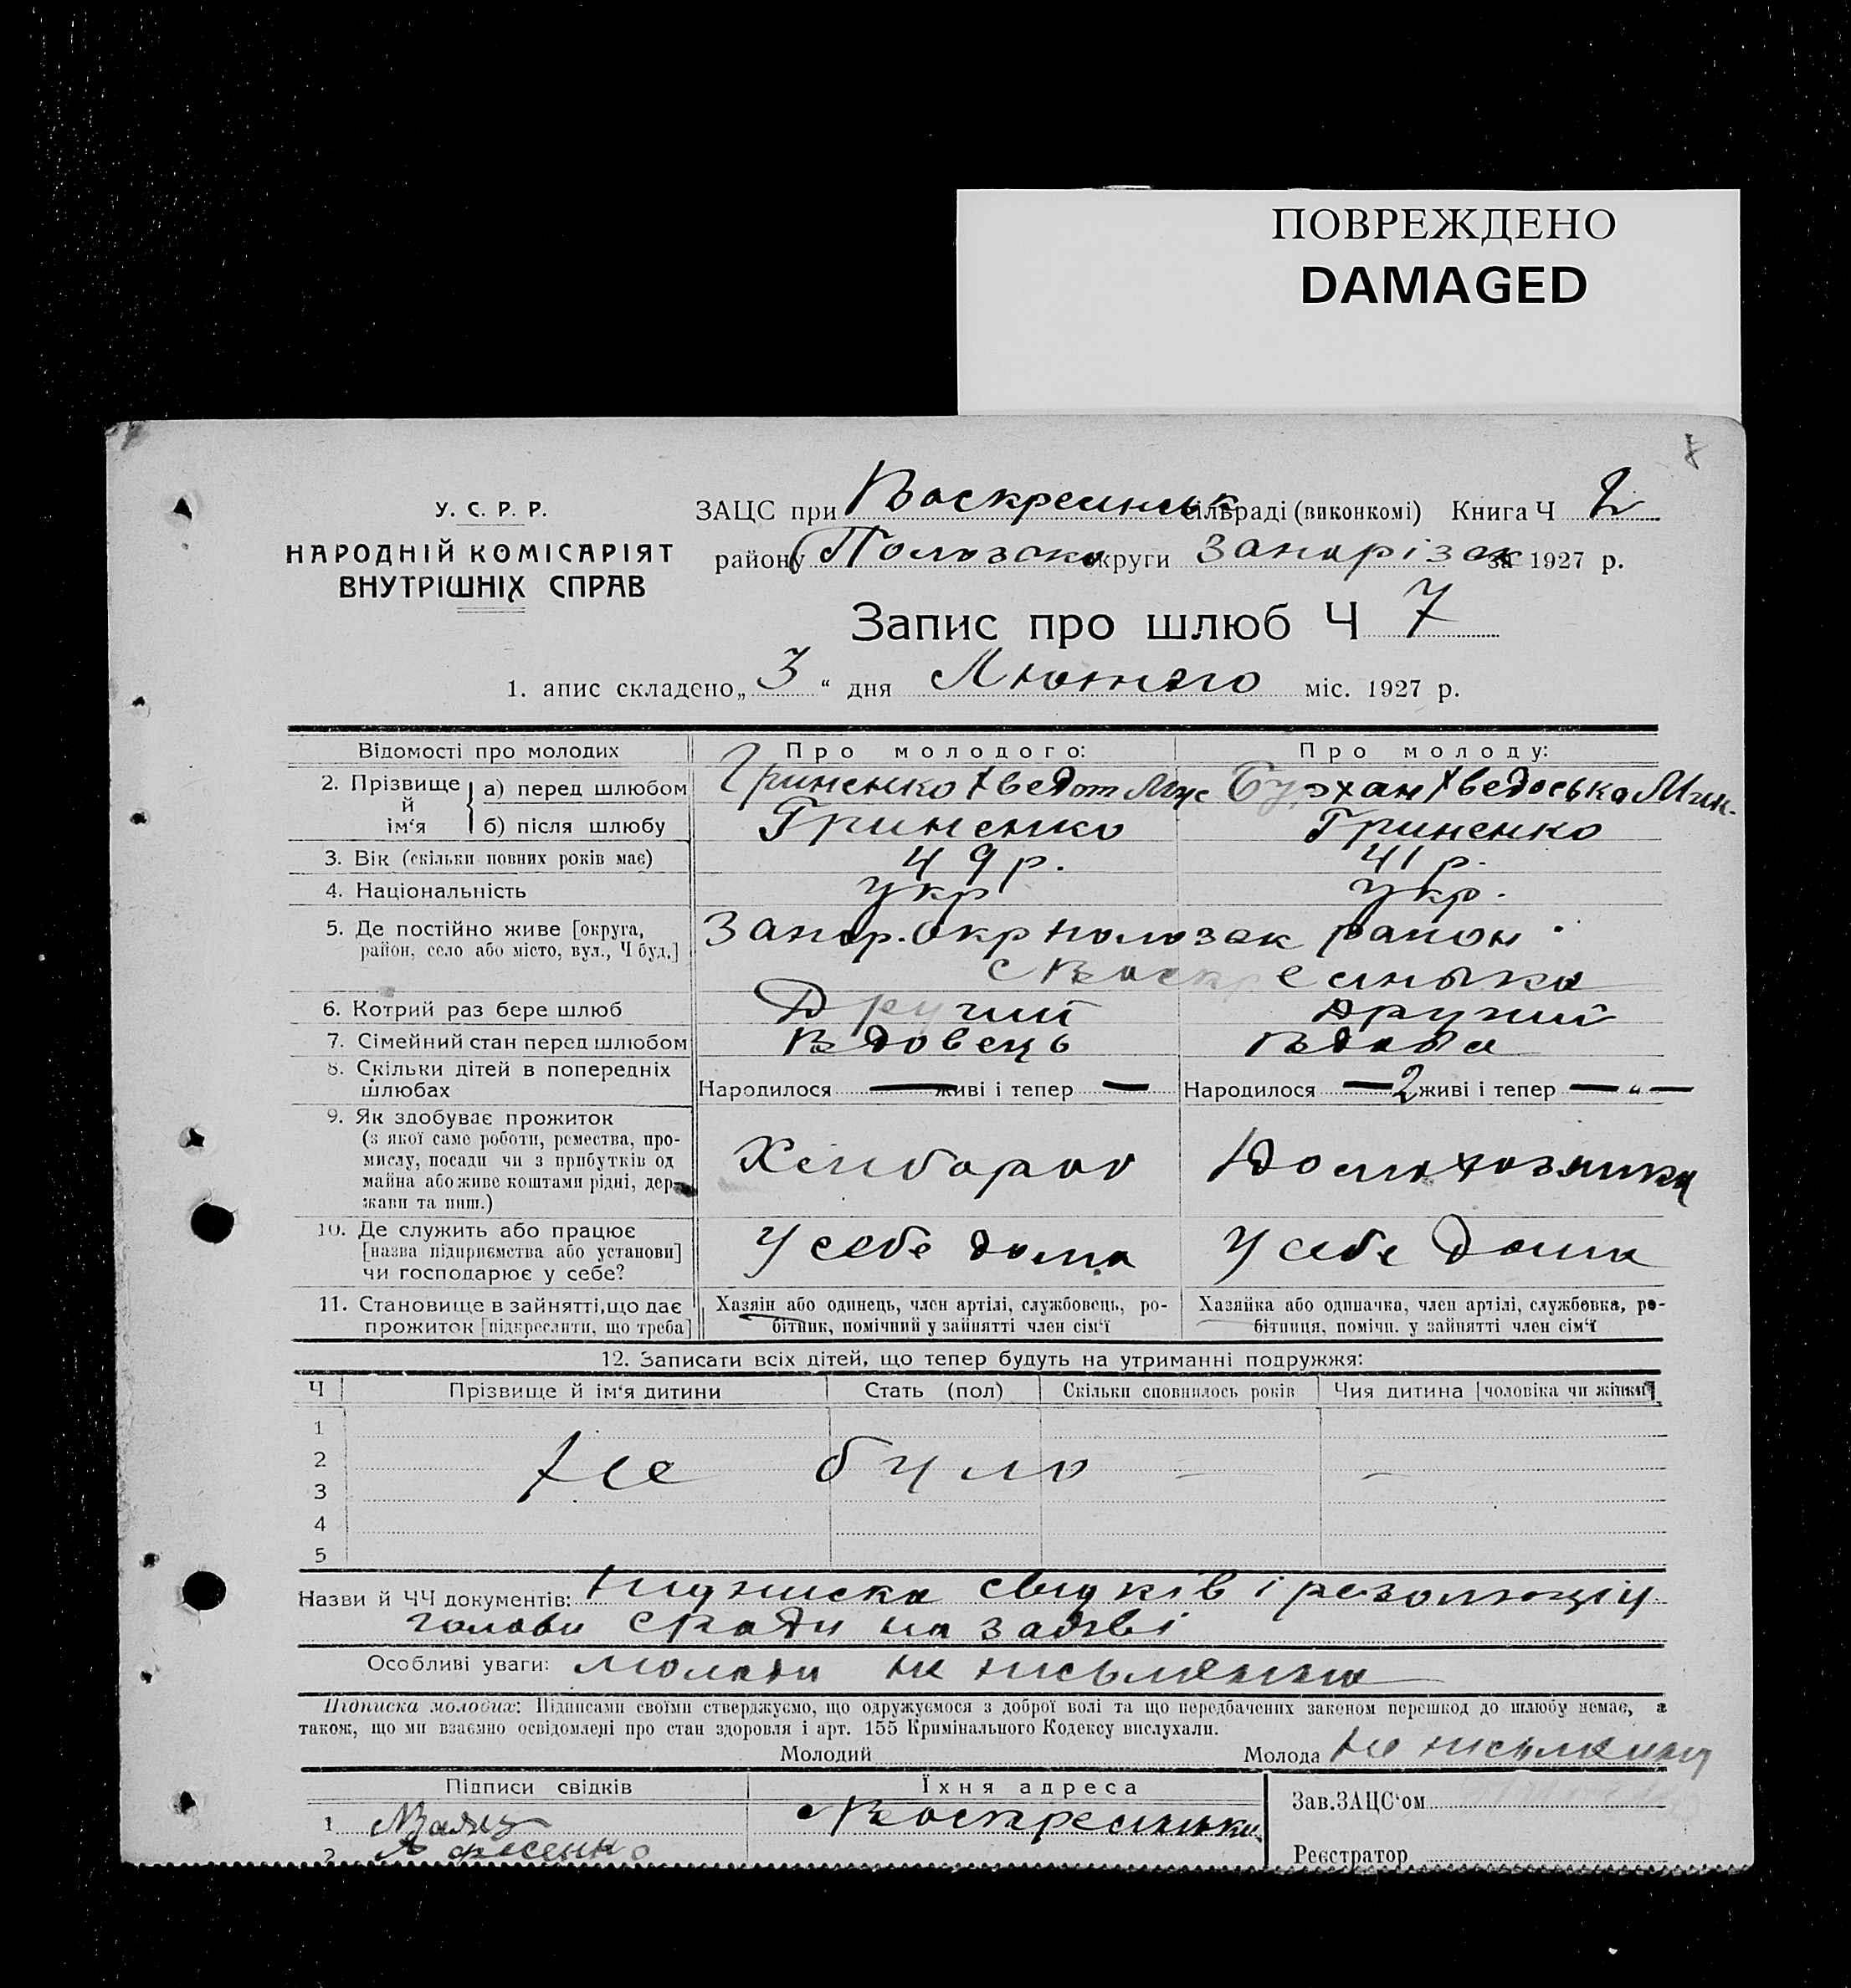 ПОВРЕЖДЕНО
DAMAGED
У. С. Р. Р.
НАРОДНІЙ КОМІСАРІЯТ
ВНУТРІШНІХ СПРАВ
ЗАЦС при Воскресинськ сільраді (виконкомі) Книга Ч 2
району Пологзск округи Запорізьк за 1927 р.
Запис про шлюб Ч 7
1. апис складено „ 3 “ дня Лютого міс. 1927 р.
Відомості про молодих Про молодого: Про молоду:
2. Прізвище й ім‘я а) перед шлюбом Гриненко Хведот Мус Хведоська Мик.
б) після шлюбу Гриненко Гриненко
3. Вік (скільки повних років має) 49 р. 41 р.
4. Національність Укр Укр.
5. Де постійно живе [округа, район, село або місто, вул., Ч буд.] Запор. окр район
с Воскресинька
6. Котрий раз бере шлюб Другий Другий
7. Сімейний стан перед шлюбом Вдовець Вдова
8. Скільки дітей в попередніх шлюбах Народилося — живі і тепер — Народилося — 2 живі і тепер — „ —
9. Як здобуває прожиток
(з якої саме роботи, ремества, про-
мислу, посади чи з прибутків од
майна або живе коштами рідні, дер-
жави та инш.) Хліборób Домохозяйка
10. Де служить або працює
[назва підприємства або установи]
чи господарює у себе? У себе дома У себе дома
11. Становище в зайнятті, що дає
прожиток [підкреслити, що треба]
Хазяін або одинець, член артілі, службовець, ро-
бітник, помічний у зайнятті член сім‘ї
Хазяйка або одиначка, член артілі, службовка, ро-
бітниця, помічн. у зайнятті член сім‘ї
12. Записати всіх дітей, що тепер будуть на утриманні подружжя:
Ч Прізвище й ім‘я дитини Стать (пол) Скільки сповнилось років Чия дитина [чоловіка чи жінки]
1
2 Не було — —
3
4
5
Назви й ЧЧ документів: Підписка свідків і резолюція
голови сради на заяві
Особливі уваги: молода не письменна
Підписка молодих: Підписами своїми стверджуємо, що одружуємося з доброї волі та що передбачених законом перешкод до шлюбу немає, а
також, що ми взаємно освідомлені про стан здоровля і арт. 155 Кримінального Кодексу вислухали.
Молодий Молода не письменна
Підписи свідків Їхня адреса Зав.ЗАЦС‘ом
1 с Воскресинька
2
Реєстратор